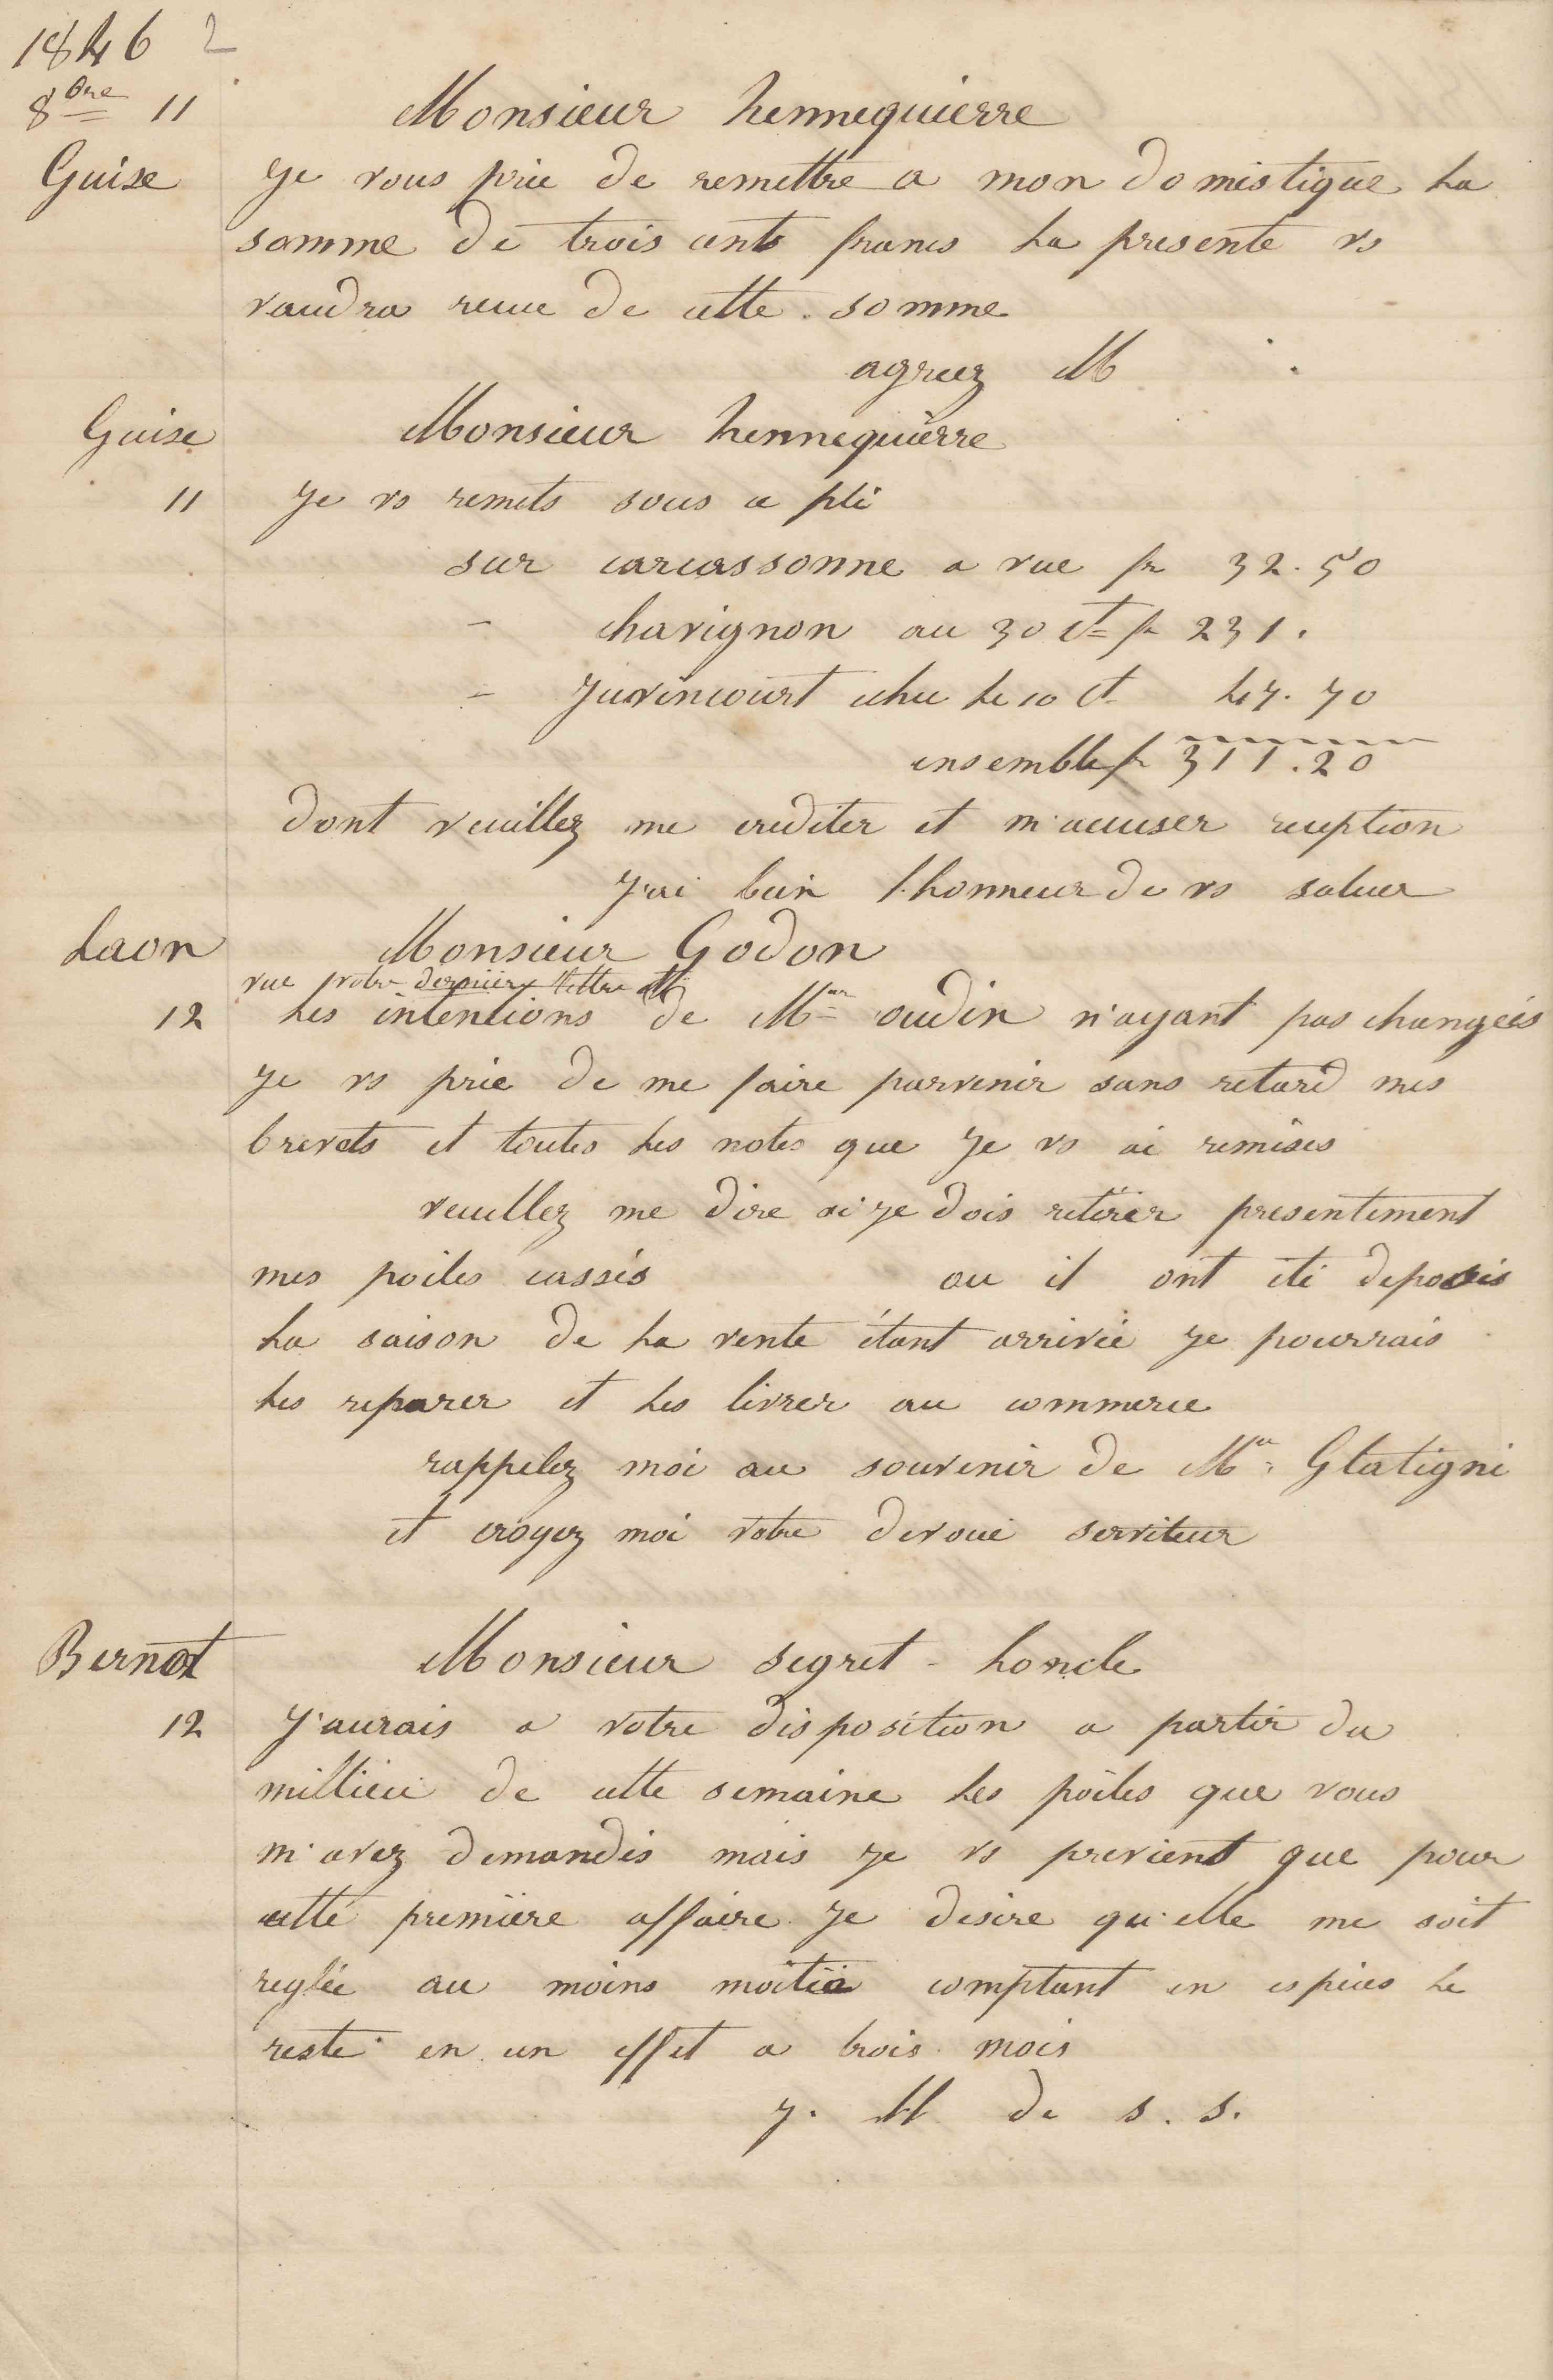 1846 2
8bre 11
Monsieur hennequierre
Guise
Je vous prie de remettre a mon domistique la
somme de trois cents francs la presente vs
vaudra recue de cette somme
agreez M
Guise
Monsieur hennequierre
11
Je vs remets sous ce pli
sur carcassonne a vue fr 32.50
- chavignon au 30 ct fr 231.
- Juvincourt echu le 10 ct 47.70
ensemble fr 311.20
dont veuillez me crediter et m'accuser reception
J'ai bein l'honneur de vs saluer
Laon
Monsieur Godon
vue votre derniere lettre et
12
les intentions de Mr oudin n'ayant pas changées
je vs prie de me faire parvenir sans retard mes
brevets et toutes les notes que Je vs ai remises
veuillez me dire si je dois retirer presentement
mes poiles cassés ou il ont été deposés
la saison de la vente étant arrivée je pourrais
les reparer et les livrer au commerce
rappelez moi au souvenir de Mr Glatigni
et croyez moi votre devoué serviteur
Bernot
Monsieur segret - honcle
12
J'aurais a votre disposition a partir du
millieu de cette semaine les poiles que vous
m'avez demandés mais je vs previent que pour
cette premiere affaire je desire qu'elle me soit
reglée au moins moitié comptant en espices le
reste en un effet a trois mois
J. H de s. s.